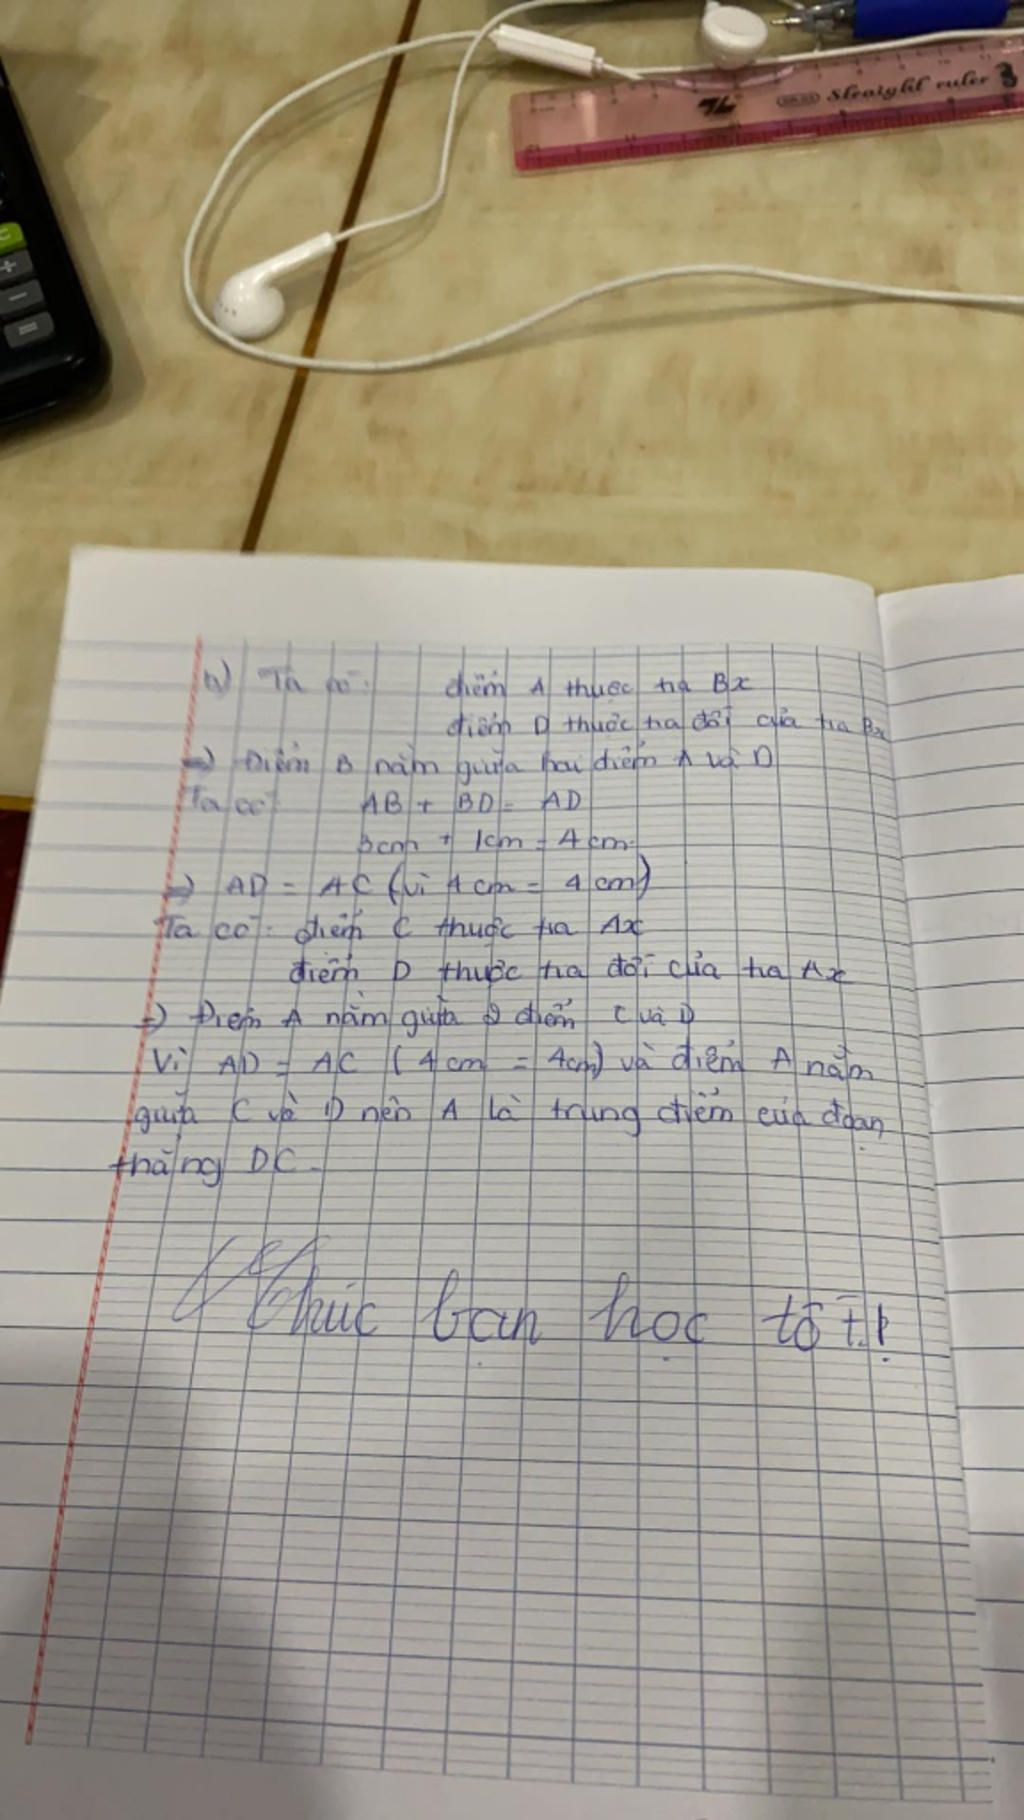 Straight ruler
b) Ta có: điểm A thuộc tia Bx
điểm D thuộc tia đối của tia Bx
=> Điểm B nằm giữa hai điểm A và D
Ta có: AB + BD = AD
3cm + 1cm = 4cm.
=> AD = AC (vì 4cm = 4cm)
Ta có: điểm C thuộc tia Ax
điểm D thuộc tia đối của tia Ax
=> Điểm A nằm giữa 2 điểm C và D
Vì AD = AC (4cm = 4cm) và điểm A nằm
giữa C và D nên A là trung điểm của đoạn
thẳng DC.
Chúc bạn học tốt!